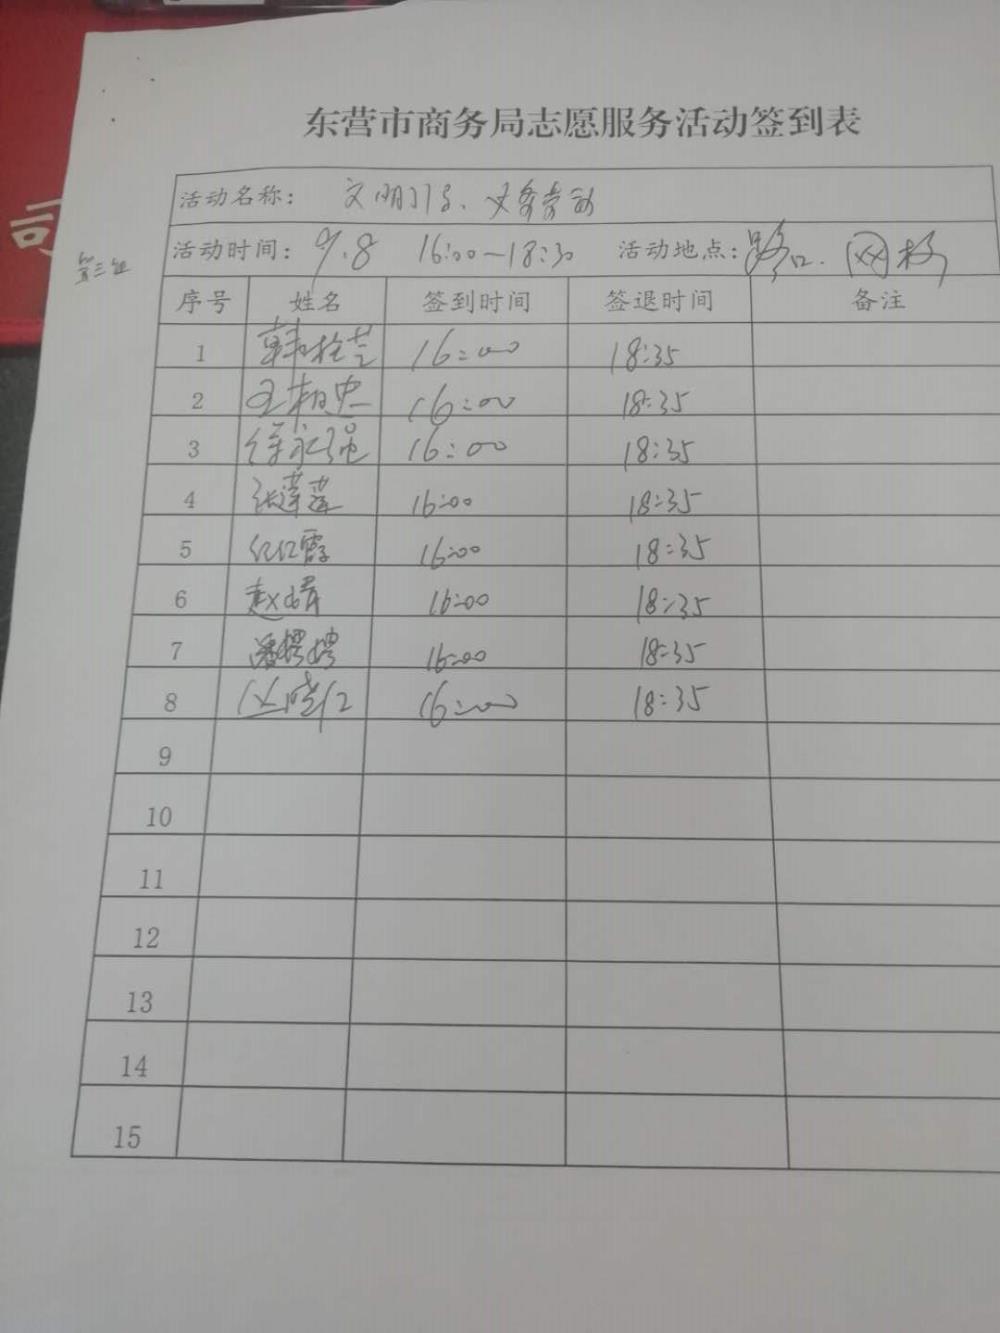 东营市商务局志愿服务活动签到表
活动名称： 文明引导、义务劳动
活动时间： 9.8 16:00—18:30 活动地点： 路口、网格
司
第三组
序号 姓名 签到时间 签退时间 备注
1 韩 16:00 18:35
2 王 16:00 18:35
3 徐永强 16:00 18:35
4 张莲莲 16:00 18:35
5 红霞 16:00 18:35
6 赵婧 16:00 18:35
7 潘娉娉 16:00 18:35
8 16:00 18:35
9
10
11
12
13
14
15